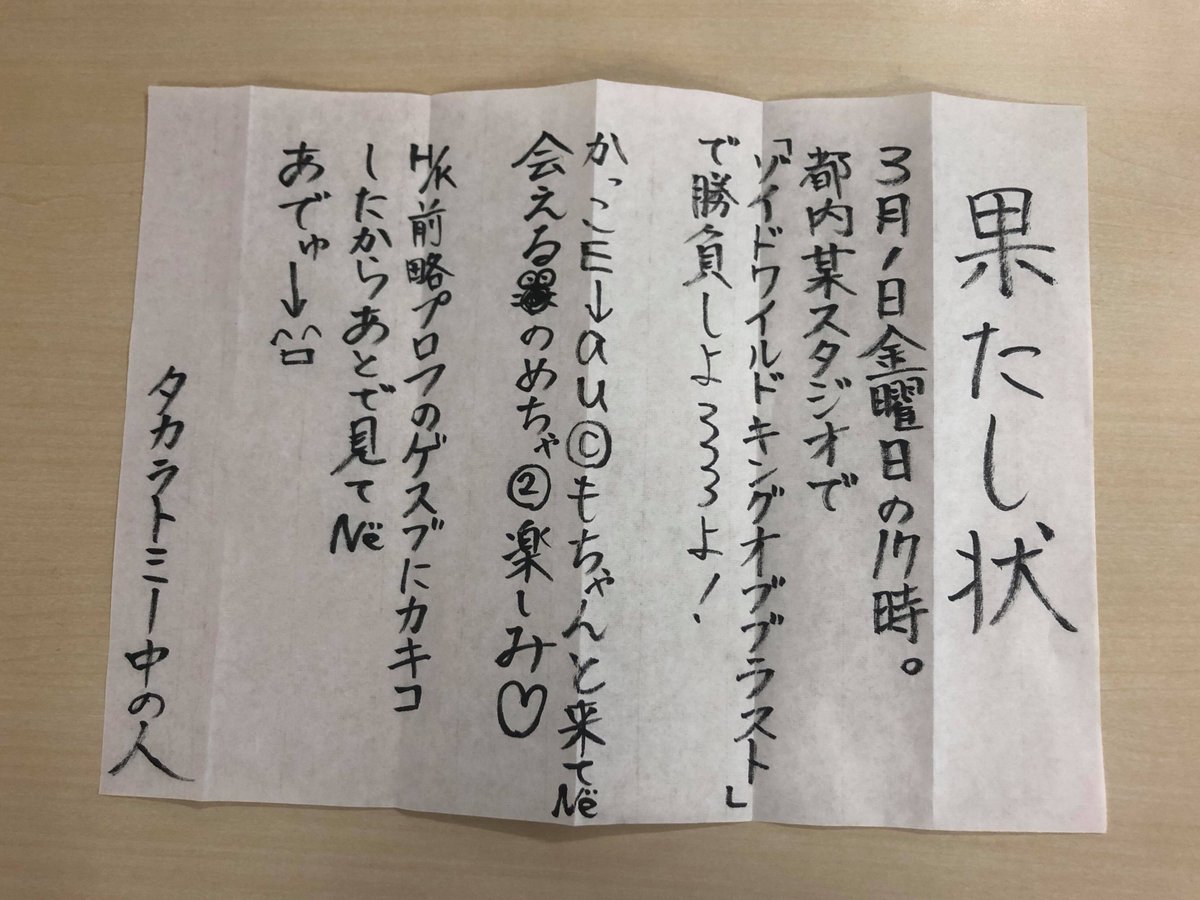 果たし状
3月1日金曜日の17時。
都内某スタジオで
「ゾイドワイルドキングオブブラスト」
で勝負しよろろろよ!
かっこE→au©もちゃんと来てNë
会えるのめちゃ②楽しみ♡
H/K前略プロフのゲスブにカキコ
したからあとで見てNë
あでゅ→^^ロ
タカラトミー中の人